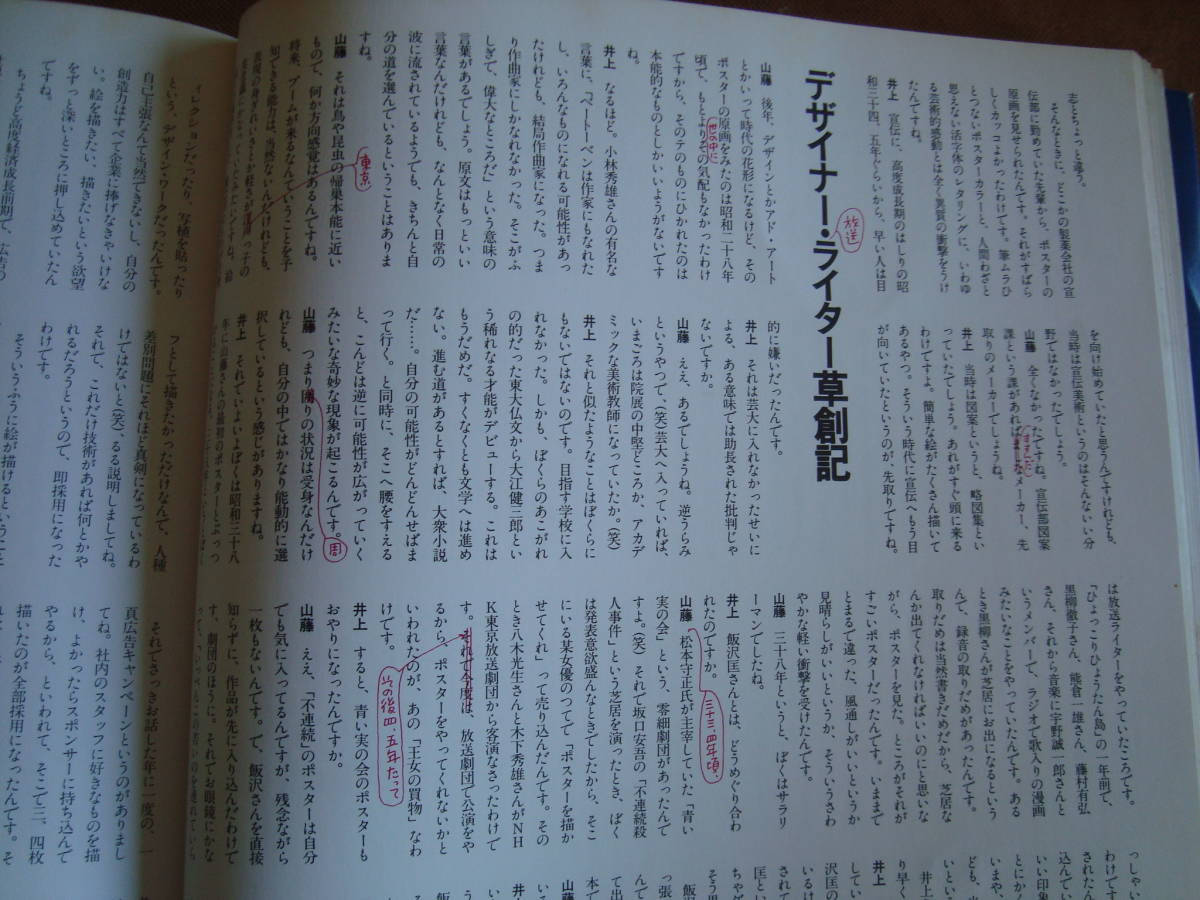 デザイナー・ライター草創記
放送
志とちょっと違う。
そんなときに、どこかの製薬会社の宣
伝部に勤めていた先輩から、ポスターの
原画を見せられたんです。それがすばら
しくカッコよかったわけです。筆ムラひ
とつないポスターカラーと、人間わざと
思えない活字体のレタリングに、いわゆ
る芸術的感動とは全く異質の衝撃をうけ
たんですね。
井上 宣伝に、高度成長期のはしりの昭
和三十四、五年ぐらいから、早い人は目
を向け始めていたと思うんですけれども、
当時は宣伝美術というのはそんないい分
野ではなかったでしょう。
山藤 全くなかったですね。宣伝部図案
課という課があればましなメーカー、先
ましだ
取りのメーカーでしょうね。
井上 当時は図案というと、略図集とい
っていたでしょう。あれがすぐ頭に来る
わけですよ。簡単な絵がたくさん描いて
あるやつ。そういう時代に宣伝へもう目
が向いていたというのが、先取りですね。
は放送ライターをやっていたころです。
「ひょっこりひょうたん島」の一年前で、
黒柳徹子さん、熊倉一雄さん、藤村有弘
さん、それから音楽に宇野誠一郎さんと
いうメンバーで、ラジオで歌入りの漫画
みたいなことをやっていたんです。ある
とき黒柳さんが芝居にお出になるという
んで、録音の取りだめがあったんです。
取りだめは当然書きだめだから、芝居な
んか出てくれなければいいのにと思いな
がら、ポスターを見た。ところがそれが
すごいポスターだったんです。いままで
とまるで違った、風通しがいいというか
見晴らしがいいというか、そういうさわ
やかな軽い衝撃を受けたんです。
山藤 三十八年というと、ぼくはサラリ
ーマンでしたね。
井上 飯沢匡さんとは、どうめぐり合わ
れたのですか。
山藤 松本守正氏が主宰していた「青い
三十三、四年頃、
実の会」という、零細劇団があったんで
すよ。(笑)それで坂口安吾の「不連続殺
人事件」という芝居を演ったとき、ぼく
は発表意欲盛んなときでしたから、そこ
にいる某女優のつてで「ポスターを描か
せてくれ」って売り込んだんです。その
とき八木光生さんと木下秀雄さんがNH
K東京放送劇団から客演なさったわけで
す。それで今度は、放送劇団で公演をや
その後四、五年たって
るから、ポスターをやってくれないかと
いわれたのが、あの「王女の買物」なわ
けです。
井上 すると、青い実の会のポスターも
おやりになったんですか。
山藤 ええ、「不連続」のポスターは自分
でも気に入ってるんですが、残念ながら
一枚もないんです。で、飯沢さんを直接
知らずに、作品が先に入り込んだわけで
す、劇団のほうに。それでお眼鏡にかな
山藤 後年、デザインとかアド・アート
とかいって時代の花形になるけど、その
ポスターの原画をみたのは昭和二十八年
頃で、もとよりその気配もなかったわけ
世の中に
ですから、そのテのものにひかれたのは
本能的なものとしかいいようがないです
ね。
井上 なるほど。小林秀雄さんの有名な
言葉に、「ベートーベンは作家にもなれた
し、いろんなものになれる可能性があっ
たけれども、結局作曲家になった。つま
り作曲家にしかなれなかった。そこがふ
しぎで、偉大なところだ」という意味の
言葉があるでしょう。原文はもっといい
言葉なんだけれども、なんとなく日常の
波に流されているようでも、きちんと自
分の道を選んでいるということはありま
すね。
山藤 それは鳥や昆虫の帰巣本能に近い
もので、何か方向感覚はあるんですね。
将来、ブームが来るなんていうことを予
知できる能力は、当然ないんだけれども、
東京
的に嫌いだったんです。
井上 それは芸大に入れなかったせいに
よる、ある意味では助長された批判じゃ
ないですか。
山藤 ええ、あるでしょうね。逆うらみ
というやつで、(笑)芸大へ入っていれば、
いまごろは院展の中堅どころか、アカデ
ミックな美術教師になっていたか。(笑)
井上 それと似たようなことはぼくらに
もないではないのです。目指す学校に入
れなかった。しかも、ぼくらのあこがれ
の的だった東大仏文から大江健三郎とい
う稀れなる才能がデビューする。これは
もうだめだ。すくなくとも文学へは進め
ない。進む道があるとすれば、大衆小説
だ……。自分の可能性がどんどんせばま
って行く。と同時に、そこへ腰をすえる
と、こんどは逆に可能性が広がっていく
みたいな奇妙な現象が起こるんです。
山藤 つまり廻りの状況は受身なんだけ
周
れども、自分の中ではかなり能動的に選
択しているという感じがありますね。
井上 それでいよいよぼくは昭和三十八
年に山藤さんの最初のポスターとぶっつ
ィレクションだったり、写植を貼ったり
という、デザイン・ワークだったんです。
自己主張なんて当然できないし、自分の
創造力はすべて企業に捧げなきゃいけな
い。絵を描きたい、描きたいという欲望
をずっと深いところに押し込めていたん
ですね。
ちょうど高度経済成長前期で、広告の
フとして描きたかっただけなんで、人種
差別問題にそれほど真剣になっているわ
けではないと(笑)、るる説明しましてね。
それで、これだけ技術があれば何とかや
れるだろうというので、即採用になった
わけです。
そういうふうに絵が描けるということ
それでさっきお話した年に一度の、一
頁広告キャンペーンというのがありまし
てね。社内のスタッフに好きなものを描
け、よかったらスポンサーに持ち込んで
やるから、といわれて、そこで三、四枚
描いたのが全部採用になったんです。そ